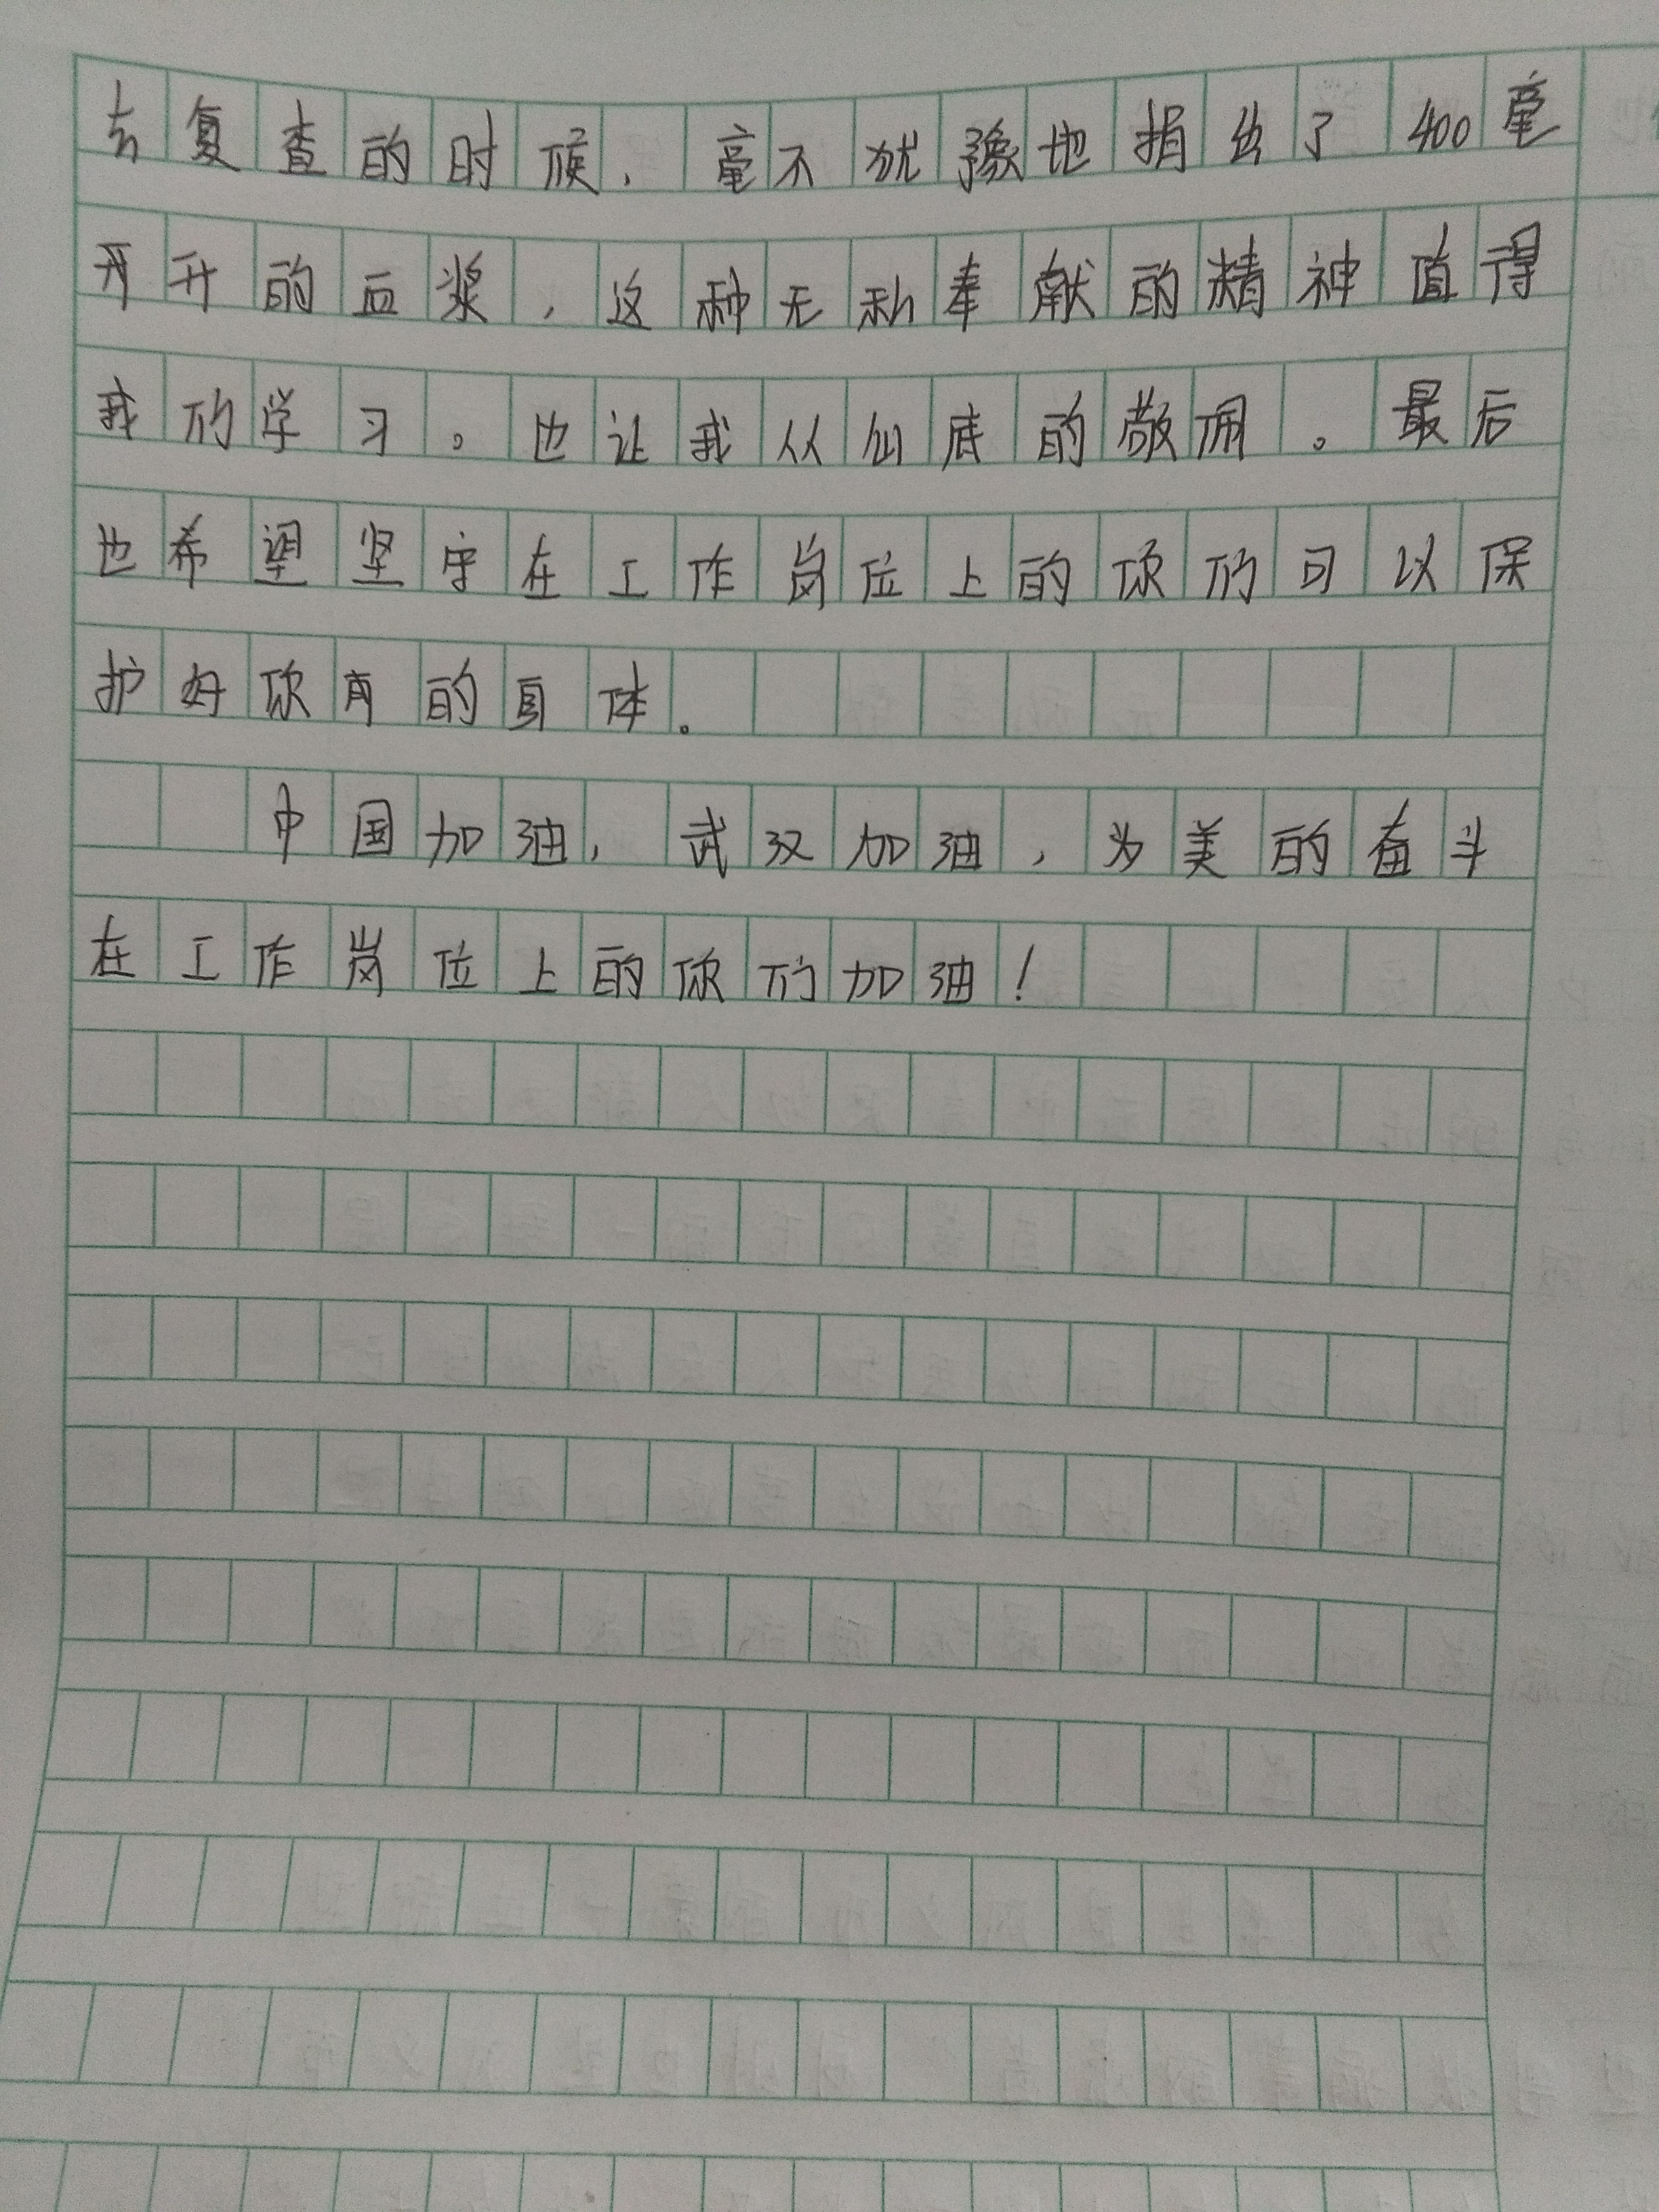 去复查的时候，毫不犹豫地捐出了400毫
升升的血浆，这种无私奉献的精神值得
我们学习。也让我从心底的敬佩。最后
也希望坚守在工作岗位上的你们可以保
护好你有的身体。
中国加油，武汉加油，为美的奋斗
在工作岗位上的你们加油！